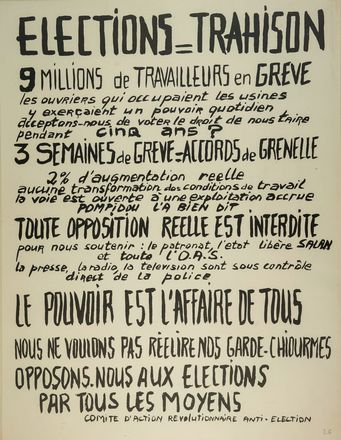 ELECTIONS=TRAHISON
9 MILLIONS de TRAVAILLEURS en GREVE
les ouvriers qui occupaient les usines
y exerçaient un pouvoir quotidien
acceptons-nous de voter le droit de nous taire
pendant cinq ans ?
3 SEMAINES de GREVE=ACCORDS de GRENELLE
2% d'augmentation reelle
aucune transformation des conditions de travail
la voie est ouverte à une exploitation accrue
POMPIDOU L'A BIEN DIT
TOUTE OPPOSITION REELLE EST INTERDITE
pour nous soutenir : le patronat, l'état libère SALAN
et toute l'O.A.S.
la presse, la radio, la television sont sous contrôle
direct de la police
LE POUVOIR EST L'AFFAIRE DE TOUS
NOUS NE VOULONS PAS RÉÉLIRE NOS GARDE-CHIOURMES
OPPOSONS.NOUS AUX ELECTIONS
PAR TOUS LES MOYENS
COMITE D'ACTION REVOLUTIONNAIRE ANTI-ELECTION